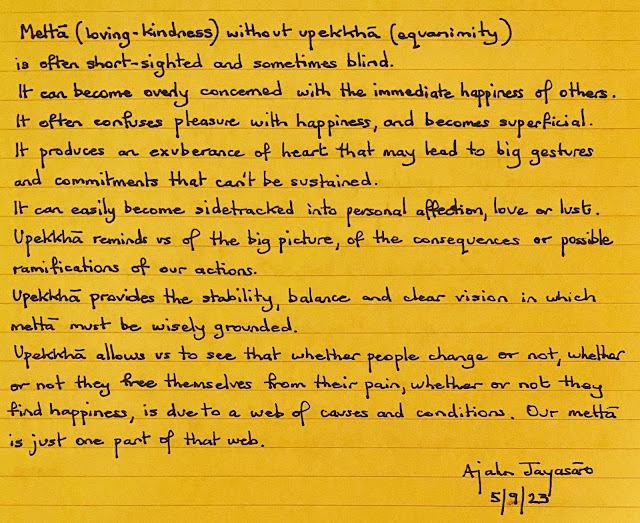 Mettā (loving-kindness) without upekkhā (equanimity)
is often short-sighted and sometimes blind.
It can become overly concerned with the immediate happiness of others.
It often confuses pleasure with happiness, and becomes superficial.
It produces an exuberance of heart that may lead to big gestures
and commitments that can't be sustained.
It can easily become sidetracked into personal affection, love or lust.
Upekkhā reminds us of the big picture, of the consequences or possible
ramifications of our actions.
Upekkhā provides the stability, balance and clear vision in which
mettā must be wisely grounded.
Upekkhā allows us to see that whether people change or not, whether
or not they free themselves from their pain, whether or not they
find happiness, is due to a web of causes and conditions. Our mettā
is just one part of that web.
Ajahn Jayasāro
5/9/23